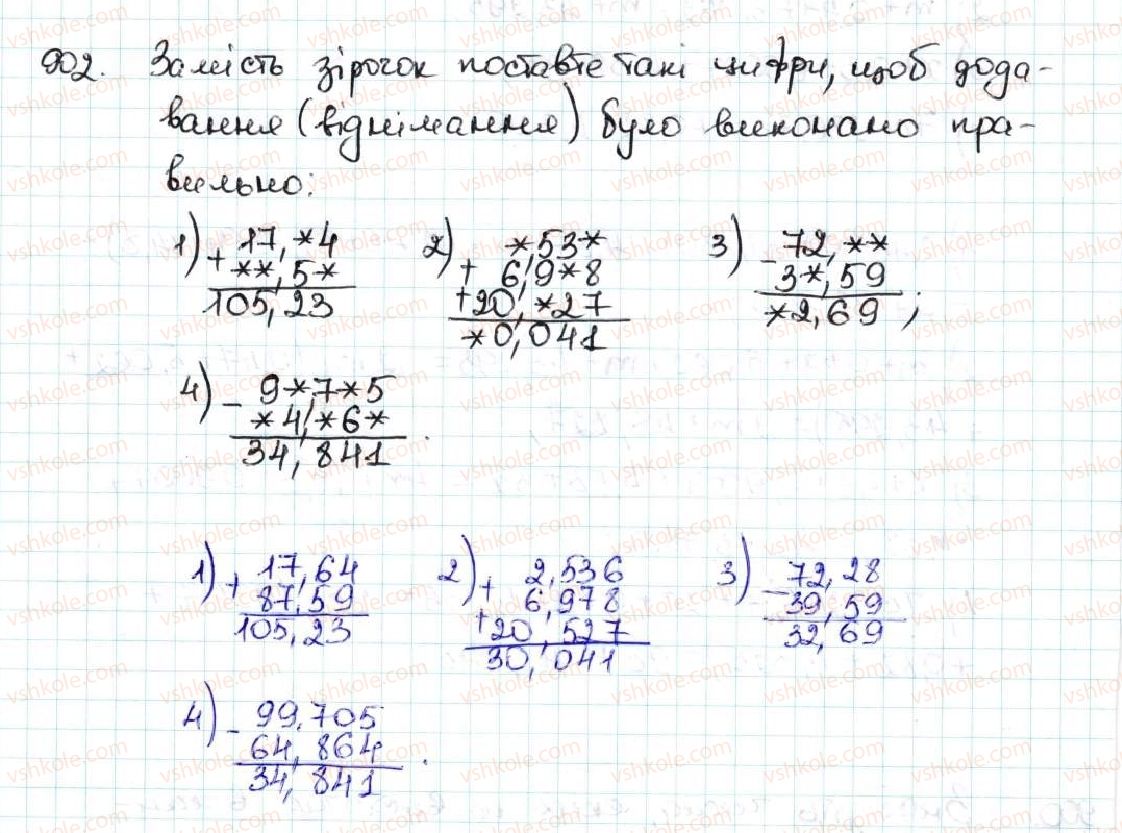 902. Замість зірочок поставте такі цифри, щоб дода-
вання (віднімання) було виконано пра-
вильно:
1) + 17,*4
**,5*
105,23
2) *,53*
+ 6,9*8
+ 20,*27
*0,041
3) - 72,**
3*,59
*2,69 ;
4) - 9*,7*5
*4,*6*
34,841 .
1) + 17,64
87,59
105,23
2) + 2,536
6,978
+ 20,527
30,041
3) - 72,28
39,59
32,69
4) - 99,705
64,864
34,841 .
vshkole.com